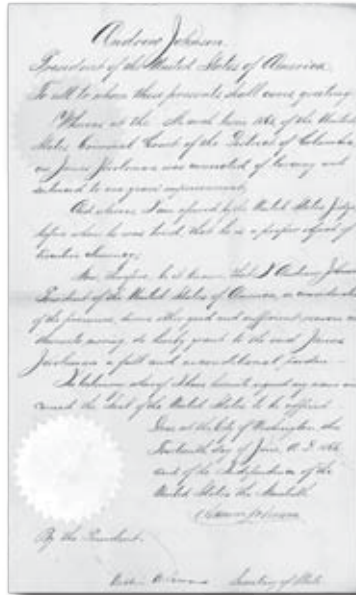 Andrew Johnson
President of the United States of America,
To all to whom these presents shall come, greeting
Whereas at the March term 186 of the United
States Criminal Court of the District of Columbia,
one James was convicted of larceny and
sentenced to one year's imprisonment;
And whereas, I am by the United States Judge
before whom he was tried, that he is a proper object of
Executive clemency;
Now, therefore, be it known, that I Andrew Johnson
President of the United States of America, in consideration
of the premises, divers other good and sufficient reasons me
thereunto moving, do hereby grant to the said James
a full and unconditional pardon.
In testimony whereof I have hereunto signed my name and
caused the Seal of the United States to be affixed.
Done at the City of Washington, this
day of June, A.D. 1866
and of the Independence of the
United States the Ninetieth
Andrew Johnson
By the President.
Secretary of State